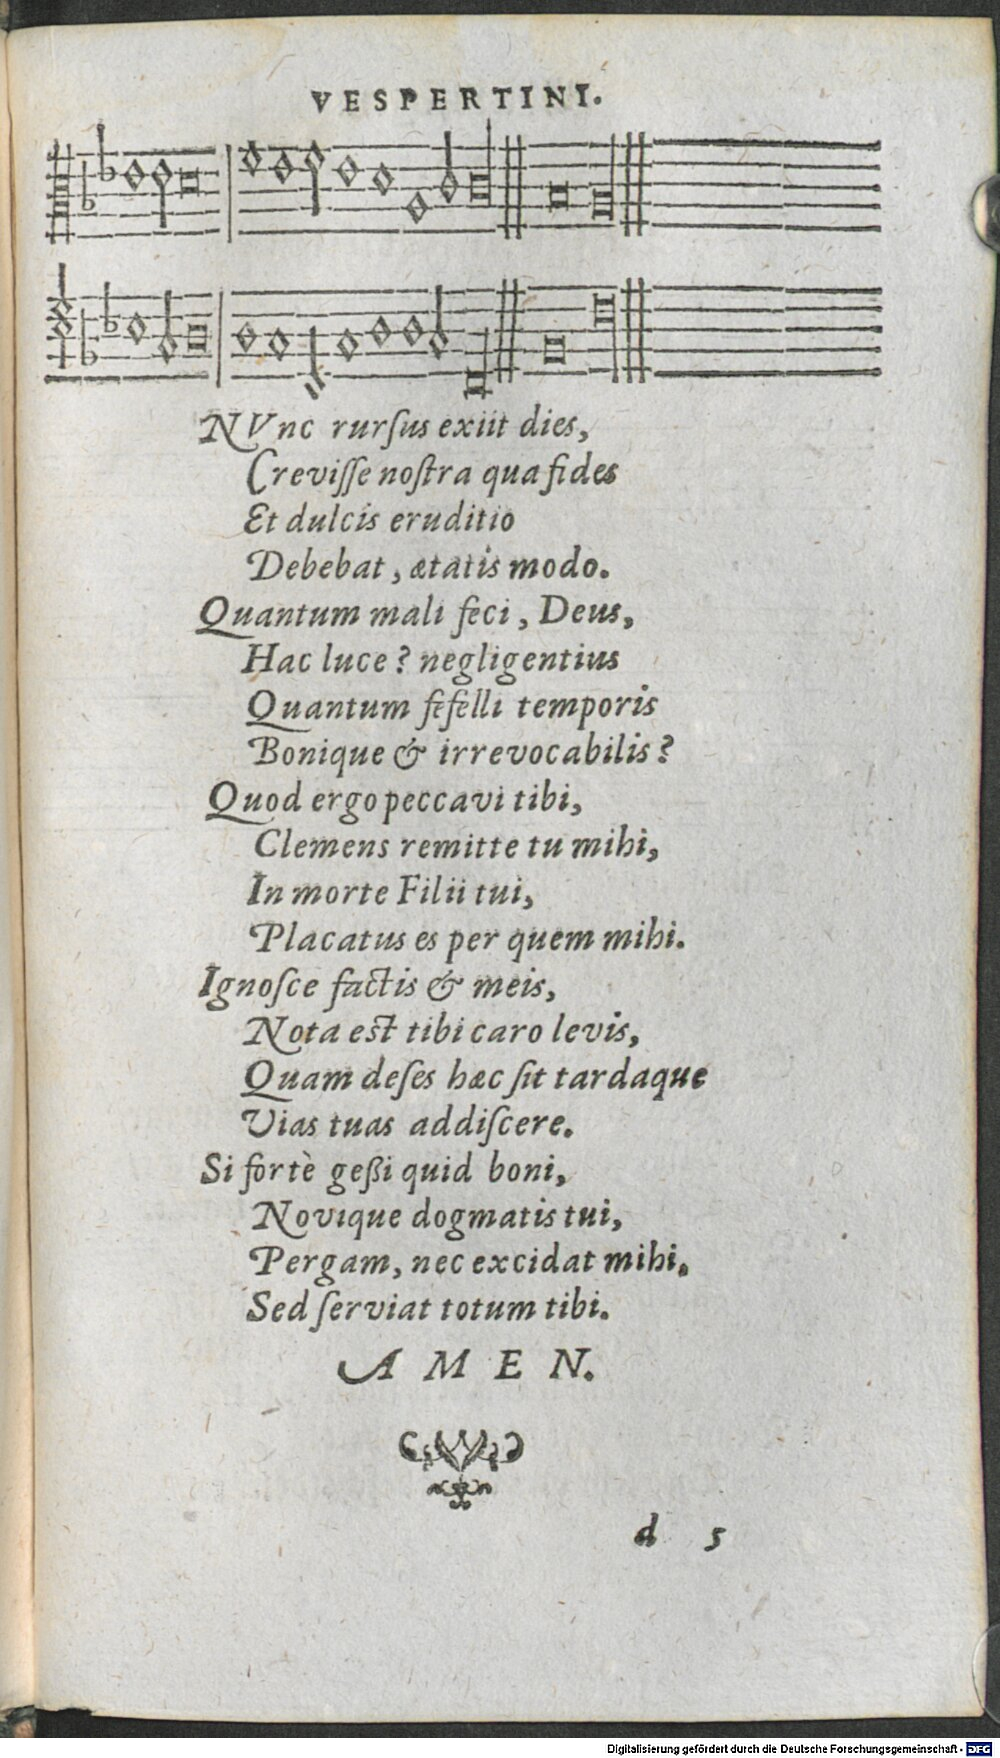 VESPERTINI.
NVnc rurſus exiit dies,
Creviſſe noſtra qua fides
Et dulcis eruditio
Debebat, ætatis modo.
Quantum mali feci, Deus,
Hac luce? negligentius
Quantum fefelli temporis
Bonique & irrevocabilis?
Quod ergo peccavi tibi,
Clemens remitte tu mihi,
In morte Filii tui,
Placatus es per quem mihi.
Ignoſce factis & meis,
Nota est tibi caro levis,
Quam deſes hæc ſit tardaque
Vias tuas addiſcere.
Si fortè geßi quid boni,
Novique dogmatis tui,
Pergam, nec excidat mihi.
Sed ſerviat totum tibi.
AMEN.
d 5
Digitalisierung gefördert durch die Deutsche Forschungsgemeinschaft - DFG